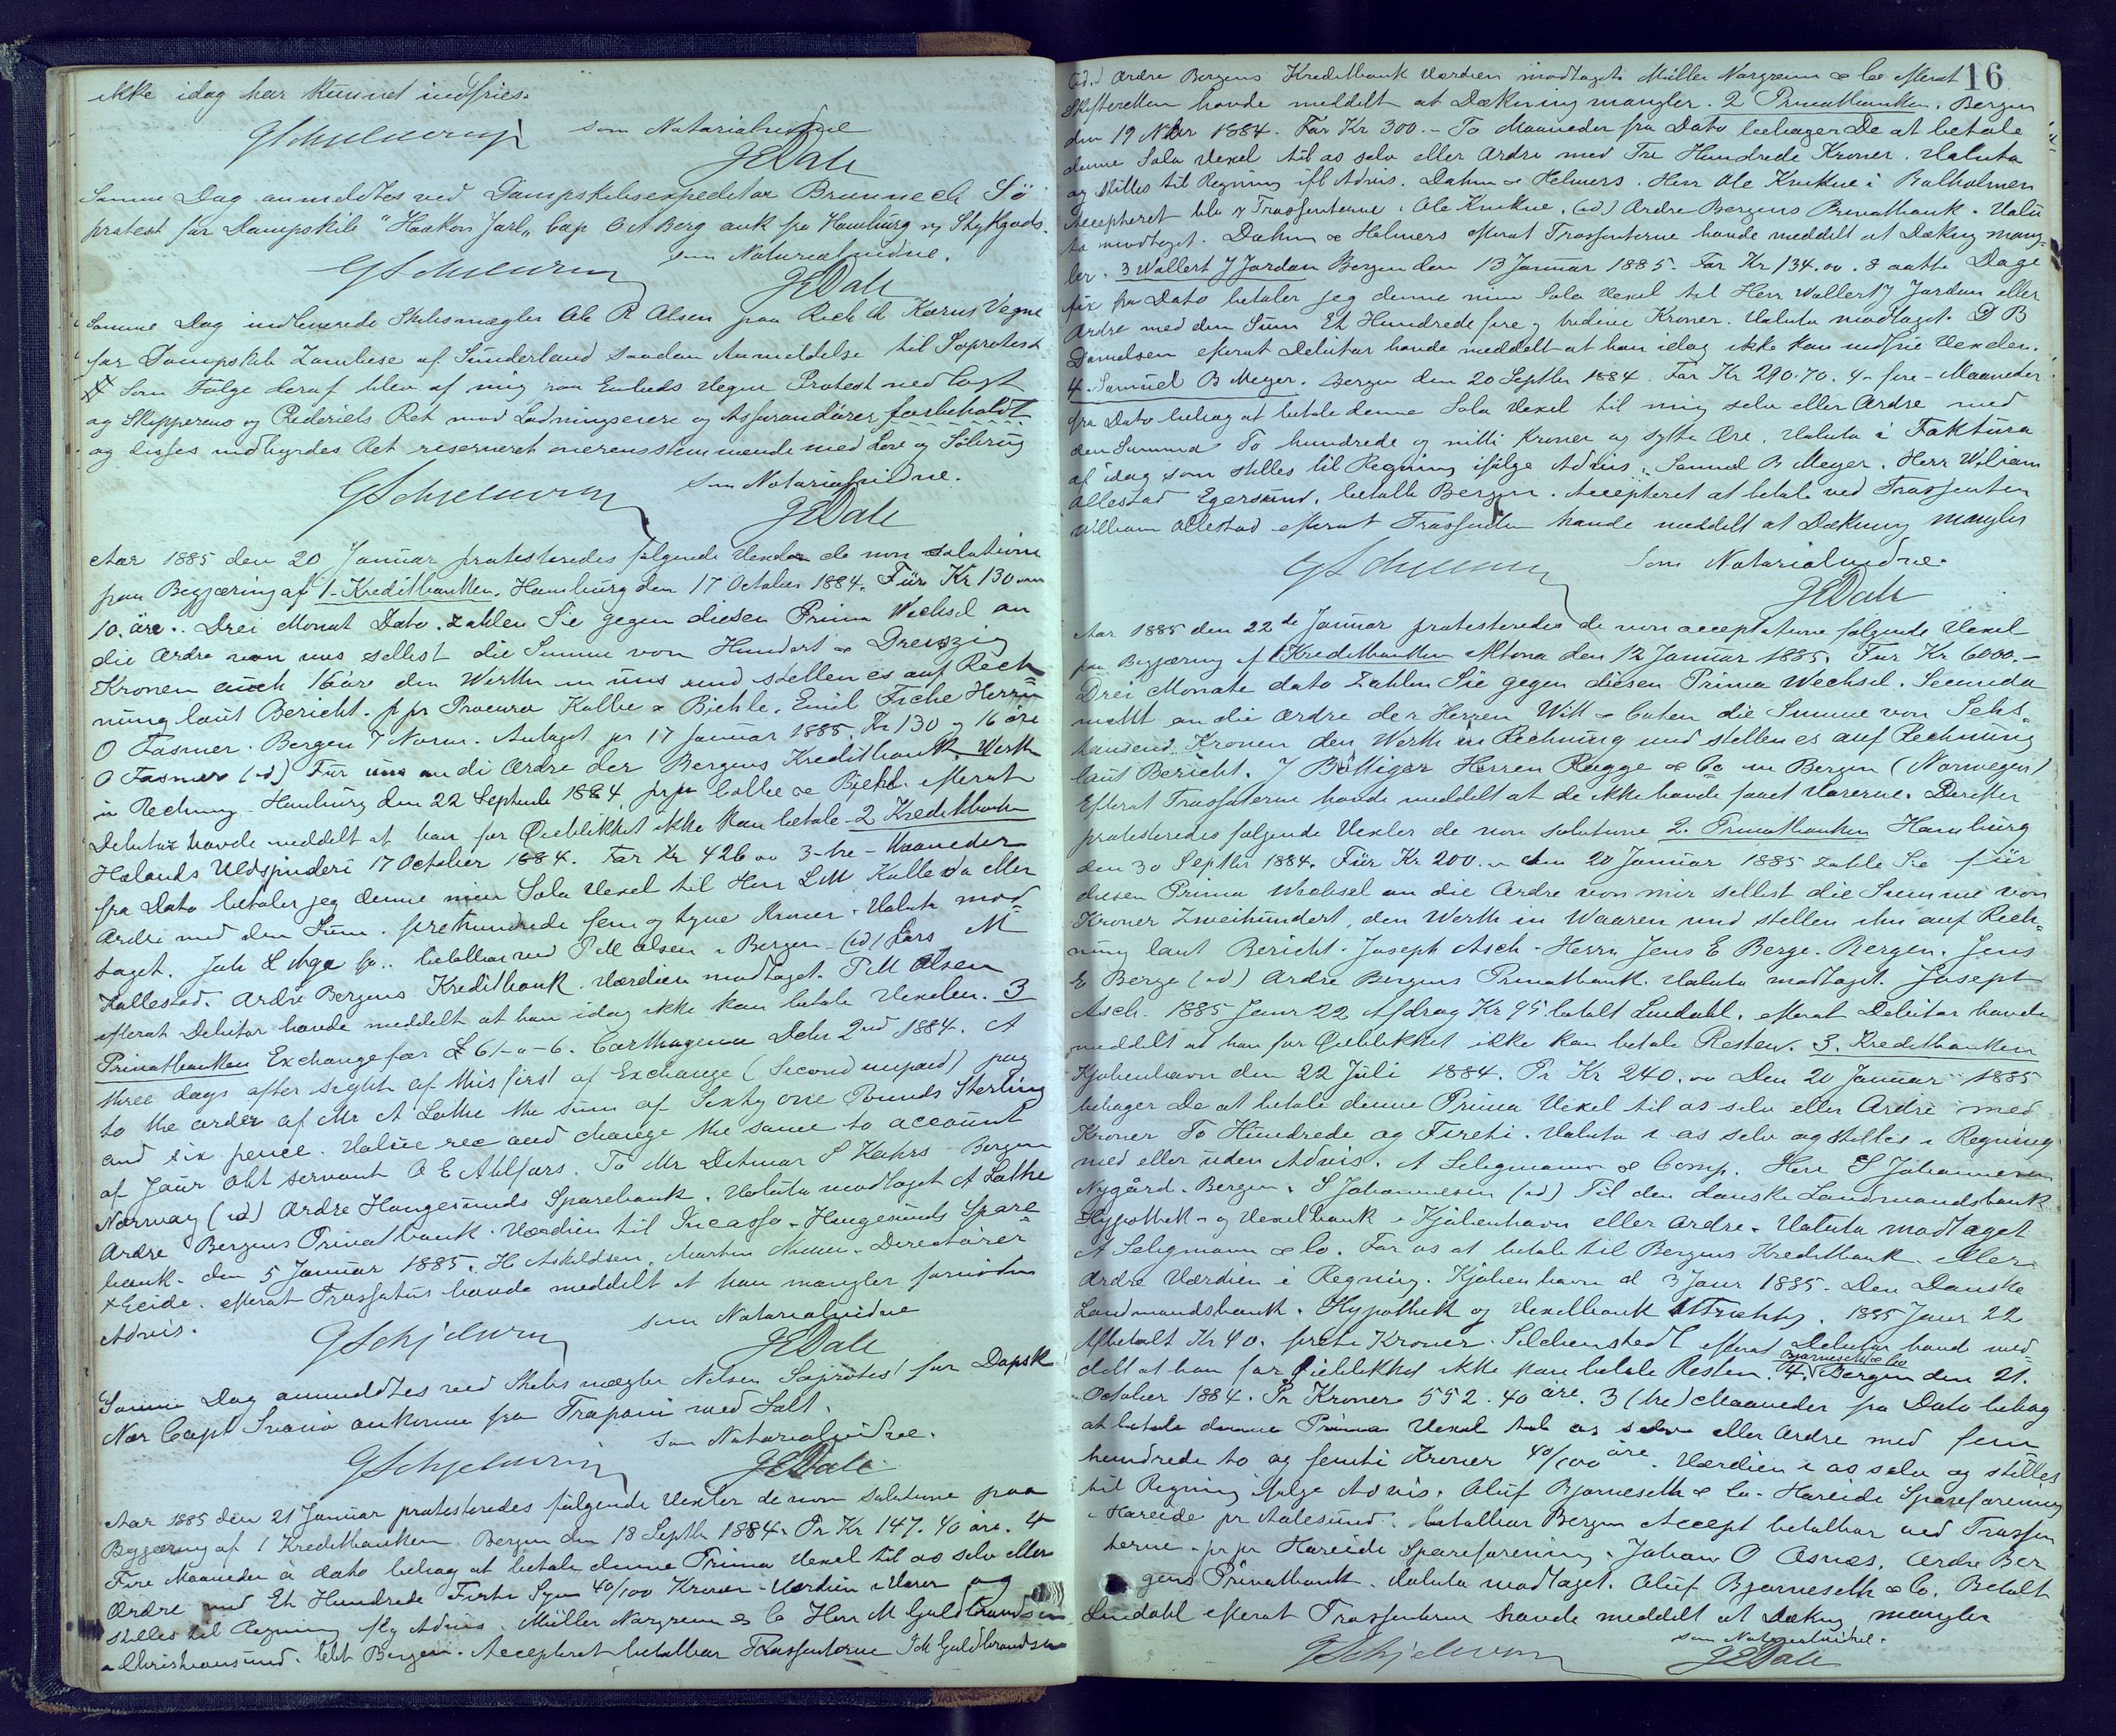 ikke idag har kunnet indfries.
GSchjelderup som Notarialvidne
JEDale
Samme Dag anmeldtes ved Dampskibsexpeditør Brunnech Sö
protest for Dampskib "Haakon Jarl" Cap O A Berg ank fra Hamburg m/ Stykgods.
GSchjelderup som Notarialvidne.
JEDale
Samme Dag indleverede Skibsmægler Ole R Olsen paa Rich A Kærus Vegne
for Dampskib Zambese af Sunderland saadan Anmeldelse til Søprotest
Som Følge deraf blev af mig paa Embeds Vegne Protest nedlagt
og Skipperens og Rederiets Ret mod Ladningseiere og Assurandører forbeholdt
og disses indbyrdes Ret reserveret overensstemmende med Lov og Sölvrug
GSchjelderup som Notarialvidne.
JEDale
Aar 1885 den 20 Januar protesteredes følgende Vexler de non solutione
paa Begjæring af 1. Kreditbanken. Hamburg den 17 October 1884. Für Kr 130
10. öre. Drei Monat Dato zahlen Sie gegen diesen Prima Wechsel an
die Ordre von uns selbst die Summe von Hundert & Dreiszig
Kronen auch 16 öre den Werth in uns und stellen es auf Rech
nung laut Bericht. p pr Procura Kalbe & Biehle. Emil Fiche Herrn
O Fasmer. Bergen 7 Norw. Antaget pr 17 Januar 1885. Kr 130 og 16 öre
O Fasmer (ad) Für uns an di Ordre der Bergens Kreditbank. Werth
in Rechnung Hamburg den 22 Septembr 1884 pr pr Colbe & Biehl. efterat
Debitor havde meddelt at han for Öieblikket ikke kan betale 2 Kreditbanken
Hølands Uldspinderi 17 October 1884. For Kr 426 00 3-tre-Maaneder
fra Dato betaler jeg denne min Sola Vexel til Herr L M Kallevda eller
Ordre med den Sum. firehundrede fem og tyve Kroner. Valuta mod
taget. Joh L Aga fo.. betalbar ved P M Olsen i Bergen (ad) Lars M
Hallestad. Ordre Bergens Kreditbank. Værdien modtaget. P M Olsen
efterat Debitor havde meddelt at han idag ikke kan betale Vexelen. 3
Privatbanken Exchange for £ 61-0-6. Carthagena Debr 2nd 1884. At
three days after sight of this first of Exchange (Second unpaid) pay
to the order of Mr A Lothe the sum of Sixty one Pounds Sterling
and six pence. Value rec and change the same to account
of Jour obt servant O E Ahlfors. To Mr Detmar S Kahrs - Bergen
Norway (ad) Ordre Haugesunds Sparebank. Valuta modtaget A Lothe
Ordre Bergens Privatbank. Værdien til Incasso. Haugesunds Spare
bank. den 5 Januar 1885. H Askeldsen, Martin Direktører
Eeide. efterat Trassatus havde meddelt at han mangler fornöden
Advis.
GSchjelderup som Notarialvidne
JEDale
Samme Dag anmeldtes ved Skibsmægler Nilsen Søprotest for Dapsk
Nær Capt ankomne fra Trapani med Salt.
GSchjelderup som Notarialvidne.
JEDale
Aar 1885 den 21 Januar protesteredes følgende Vexler de non solutione paa
Begjæring af 1 Kreditbanken Bergen den 18 Septbr 1884. Pr Kr 147. 40 öre. 4
Fire Maaneder á dato behag at betale denne Prima Vexel til os selv eller
Ordre med Et Hundrede Förti Syv 40/100 Kroner. Værdien i Varer og
stilles til Regning ifg Advis. Müller Norgreen & Co Herr M Guldbrandsen
Christiansund. blt Bergen. Accepteret betalbar Trassenterne I M Guldbrandsen
16
(ad.) Ordre Bergens Kreditbank Værdien modtaget Müller Norgreen & Co efterat
Skifteretten havde meddelt at Dækning mangler. 2 Privatbanken. Bergen
den 19 Nbr 1884. For Kr 300.- To Maaneder fra Dato behager De at betale
denne Sola Vexel til os selv eller Ordre med Tre Hundrede Kroner. Valuta
og stilles til Regning ifl Advis. Dahm & Helmers. Herr Ole Kvikne i Balholmen
Accepteret blb v Trassenterne. Ole Kvikne. (ad) Ordre Bergens Privatbank. Valu
ta modtaget. Dahm & Helmers efterat Trassenterne havde meddelt at Dækng mang=
ler. 3 Wollert J Jordan Bergen den 13 Januar 1885. For Kr 134.00. 8 aatte Dage
fix fra Dato betaler jeg denne min Sola Vexel til Herr Wollert J Jordan eller
Ordre med den Sum Et Hundrede fire og tredive Kroner. Valuta modtaget. D B
Danielsen efterat Debitor havde meddelt at han idag ikke kan indfrie Vexelen.
4. Samuel B Meyer. Bergen den 20 Septbr 1884. For Kr 290.70. 4-fire-Maaneder
fra Dato behag at betale denne Sola Vexel til mig selv eller Ordre med
den Summa To hundrede og nitti Kroner og sytti Öre. Valuta i Faktura
af idag som stilles til Regning ifølge Advis. Samuel B Meyer. Herr William
Ollestad Egersund. betalb Bergen. Accepteret at betale ved Trassenten
William Ollestad efterat Trassenten havde meddelt at Dækning mangler
GSchjelderup som Notarialvidne.
JEDale
Aar 1885 den 22de Januar protesteredes de non acceptatione følgende Vexel
paa Begjæring af 1 Kreditbanken Altona den 12 Januar 1885. Für Kr 6000.-
Drei Monate dato zahlen Sie gegen diesen Prima Wechsel. Secunda
nicht an die Ordre der Herren Witt & Caten die Summe von Sehs-
tausend Kronen den Werth in Rechnung und stellen es auf Rechnung
laut Bericht. J Böttiger Herren Rugge & Co in Bergen (Norwegen)
Efterat Trassaterne havde meddelt at de ikke havde faaet Varerne. Derefter
protesteredes følgende Vexler de non solutione 2. Privatbanken Hamburg
den 30 Septbr 1884. Für Kr 200.- Am 20 Januar 1885 zahle Sie für
diesen Prima Wechsel an die Ordre von mir selbst die Summe von
Kroner Zweihundert, den Werth in Waaren und stellen ihn auf Rech=
nung laut Bericht. Joseph Asch. Herrn Jens E Berge. Bergen. Jens
E Berge (ad) Ordre Bergens Privatbank. Valuta modtaget. Joseph
Asch. 1885 Janr 22 Afdrag Kr 95 betalt Lindahl. efterat Debitor havde
meddelt at han for Öieblikket ikke kan betale Resten. 3. Kreditbanken
Kjøbenhavn den 22 Juli 1884. Pr Kr 240.00 Den 20 Januar 1885
behager De at betale denne Prima Vexel til os selv eller Ordre med
Kroner To Hundrede og Fireti. Valuta i os selv og stilles i Regning
med eller uden Advis. A Seligmann & Comp. Herr S Johannesen
Nygård. Bergen. S Johannesen (ad) Til den danske Landmandsbank
Hypothek- og Vexelbank i Kjøbenhavn eller Ordre. Valuta modtaget
A Seligmann & Co. For os at betale til Bergens Kreditbank eller
Ordre Værdien i Regning. Kjøbenhavn d 3 Janr 1885. Den Danske
Landmandsbank. Hypothek og Vexelbank 1885 Janr 22
Afbetalt Kr 40. fireti Kroner. Silchenstedt efterat Debitor havd med=
delt at han for Öieblikket ikke kan betale Resten. 4. Bjørneseth & Co Bergen den 21.
October 1884. Pr Kroner 552. 40 öre. 3 (tre) Maaneder fra Dato behag
at betale denne Prima Vexel til os selv eller Ordre med fem
hundrede to og femti Kroner 40/100 öre. Værdien i os selv og stilles
til Regning ifølge Advis. Oluf Bjørneseth & Co. Hareide Spareforening
i Hareide pr Aalesund. betalbar Bergen Accept betalbar ved Trassen
terne. pr pr Hareide Spareforening. Johan O Asnæs. Ordre Ber
gens Privatbank. Valuta modtaget. Oluf Bjørneseth & Co. Betalt
Lindahl efterat Trassenterne havde meddelt at Dækng mangler
GSchjelderup som Notarialvidne.
JEDale